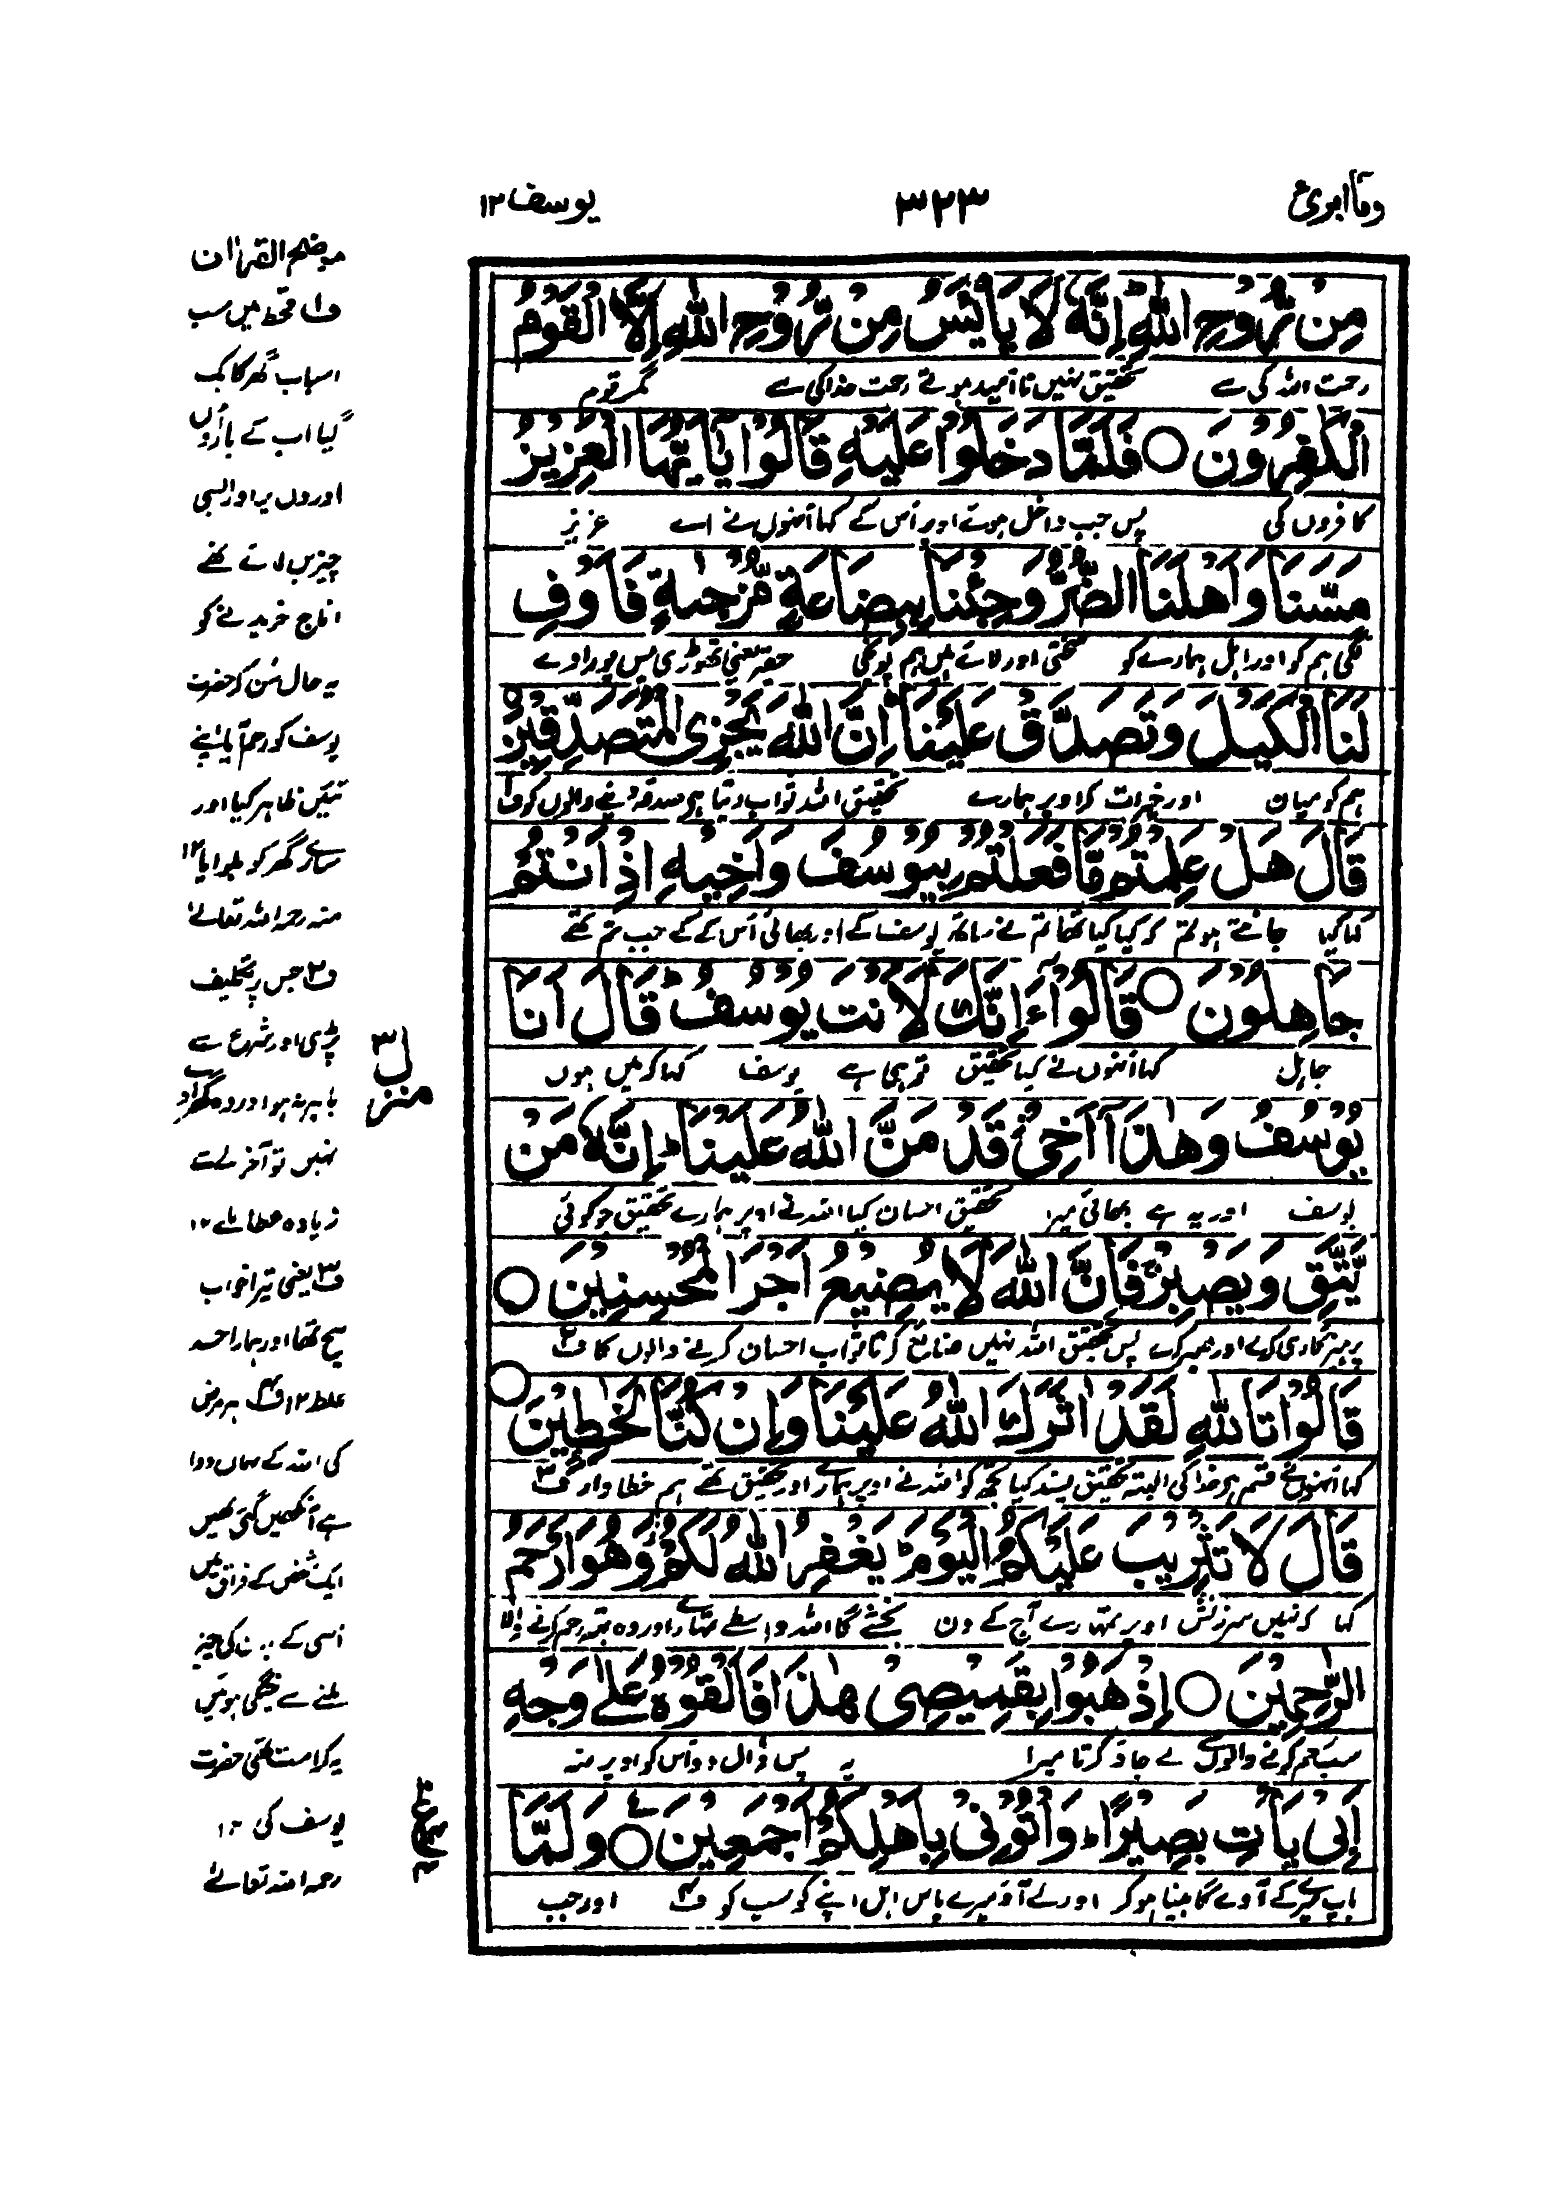 وما ابرئ
۳۲۳
یوسف ۱۲
مِنْ رَّوْحِ اللّٰهِ ؕ اِنَّهٗ لَا یَایْـَٔسُ مِنْ رَّوْحِ اللّٰهِ اِلَّا الْقَوْمُ
رحمت اللہ کی سے تحقیق نہیں نا اُمید ہوتے رحمت خدا کی سے مگر قوم
الْكٰفِرُوْنَ ○ فَلَمَّا دَخَلُوْا عَلَیْهِ قَالُوْا یٰۤاَیُّهَا الْعَزِیْزُ
کافروں کی پس جب داخل ہوئے اوپر اُس کے کہا اُنہوں نے اے عزیز
مَسَّنَا وَ اَهْلَنَا الضُّرُّ وَ جِئْنَا بِبِضَاعَةٍ مُّزْجٰىةٍ فَاَوْفِ
لگی ہم کو اور اہل ہمارے کو سختی اور لائے ہیں ہم پونجی حقیر یعنی تھوڑی پس پورا دے
لَنَا الْكَیْلَ وَ تَصَدَّقْ عَلَیْنَا ؕ اِنَّ اللّٰهَ یَجْزِی الْمُتَصَدِّقِیْنَ
ہم کو میان اور خیرات کر اوپر ہمارے تحقیق اللہ ثواب دیتا ہے صدقہ دینے والوں کو ف۱
قَالَ هَلْ عَلِمْتُمْ مَّا فَعَلْتُمْ بِیُوْسُفَ وَ اَخِیْهِ اِذْ اَنْتُمْ
کہا کیا جانتے ہو تم کہ کیا کیا تھا تم نے ساتھ یوسف کے اور بھائی اُس کے کے جب تم تھے
جٰهِلُوْنَ ○ قَالُوْۤا ءَاِنَّكَ لَاَنْتَ یُوْسُفُ ؕ قَالَ اَنَا
جاہل کہا اُنہوں نے کیا تحقیق تو ہی ہے یوسف کہا کہ میں ہوں
یُوْسُفُ وَ هٰذَاۤ اَخِیْ قَدْ مَنَّ اللّٰهُ عَلَیْنَا ؕ اِنَّهٗ مَنْ
یوسف اور یہ ہے بھائی میرا تحقیق احسان کیا اللہ نے اوپر ہمارے تحقیق جو کوئی
یَّتَّقِ وَ یَصْبِرْ فَاِنَّ اللّٰهَ لَا یُضِیْعُ اَجْرَ الْمُحْسِنِیْنَ ○
پرہیزگاری کرے اور صبر کرے پس تحقیق اللہ نہیں ضائع کرتا ثواب احسان کرنے والوں کا ف۲
قَالُوْا تَاللّٰهِ لَقَدْ اٰثَرَكَ اللّٰهُ عَلَیْنَا وَ اِنْ كُنَّا لَخٰطِـِٕیْنَ ○
کہا اُنہوں نے قسم ہے خدا کی البتہ تحقیق پسند کیا تجھ کو اللہ نے اوپر ہمارے اور تحقیق تھے ہم خطاوار ف۳
قَالَ لَا تَثْرِیْبَ عَلَیْكُمُ الْیَوْمَ ؕ یَغْفِرُ اللّٰهُ لَكُمْ وَ هُوَ اَرْحَمُ
کہا کہ نہیں سرزنش اوپر تمہارے آج کے دن بخشے گا اللہ واسطے تمہارے اور وہ بہتر رحم کرنے والا
الرّٰحِمِیْنَ ○ اِذْهَبُوْا بِقَمِیْصِیْ هٰذَا فَاَلْقُوْهُ عَلٰى وَجْهِ
سب رحم کرنے والوں سے لے جاؤ کرتا میرا یہ پس ڈال دو اُس کو اوپر منہ
اَبِیْ یَاْتِ بَصِیْرًا ؕ وَ اْتُوْنِیْ بِاَهْلِكُمْ اَجْمَعِیْنَ ○ وَ لَمَّا
باپ میرے کے آوے گا بینا ہو کر اور لے آؤ میرے پاس اہل اپنے کو سب کو ف۴ اور جب
موضح القرآن
ف۱ قحط میں سب
اسباب گھر کا بک
گیا اب کے بار اُون
اور پنیر اور ایسی
چیزیں لائے تھے
اناج خریدنے کو
یہ حال سُن کر حضرت
یوسف کو رحم آیا اپنے
تئیں ظاہر کیا اور
سارے گھر کو بلوایا ۱۲
منہ رحمہ اللہ تعالیٰ
ف۲ جس پر تکلیف
پڑی اور شرع سے
باہر نہ ہوا اور گھبراوے
نہیں تو آخر بلا سے
زیادہ عطا ملے ۱۲
ف۳ یعنی تیرا خواب
سچ تھا اور ہمارا حسد
غلط ۱۲ ف۴ ہر مرض
کی اللہ کے یہاں دوا
ہے آنکھیں گئی تھیں
ایک شخص کے فراق میں
اسی کے بدن کی چیز
ملنے سے چنگی ہوئیں
یہ کرامت تھی حضرت
یوسف کی ۱۲
رحمہ اللہ تعالیٰ
منزل ۳